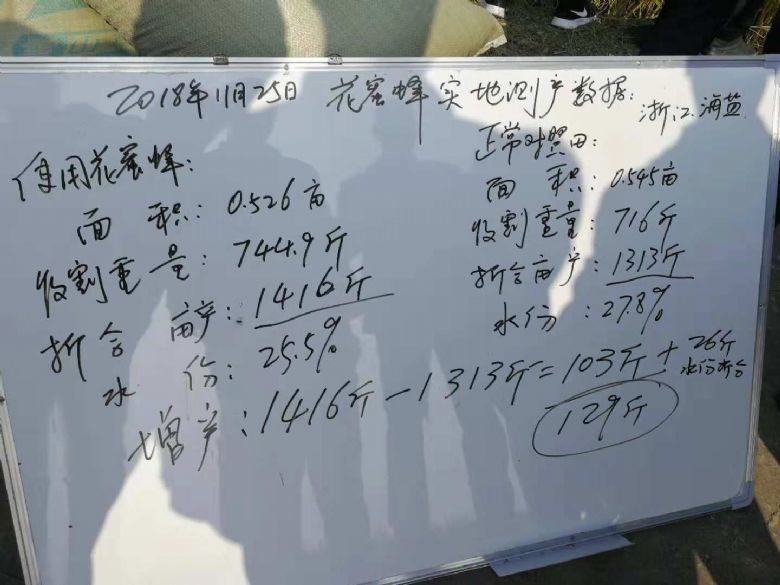 2018年11月25日 花蜜蜂实地测产数据: 浙江海盐
使用花蜜蜂:
面积: 0.526亩
收割重量: 744.9斤
折合亩产: 1416斤
水份: 25.5%
正常对照田:
面积: 0.545亩
收割重量: 716斤
折合亩产: 1313斤
水份: 27.8%
增产: 1416斤-1313斤=103斤+26斤水份折合
129斤